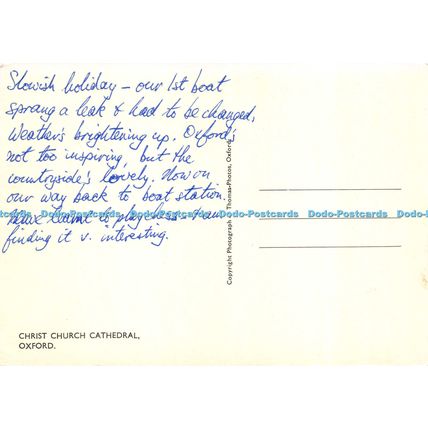 Slowish holiday – our 1st boat
sprang a leak & had to be changed,
Weather's brightening up. Oxford's
not too inspiring, but the
countryside's lovely. Now on
our way back to boat station.
Have learnt to play chess & am
finding it v. interesting.
Dodo-Postcards Dodo-Postcards Dodo-Postcards Dodo-Postcards
Copyright Photograph Thomas-Photos, Oxford
CHRIST CHURCH CATHEDRAL,
OXFORD.